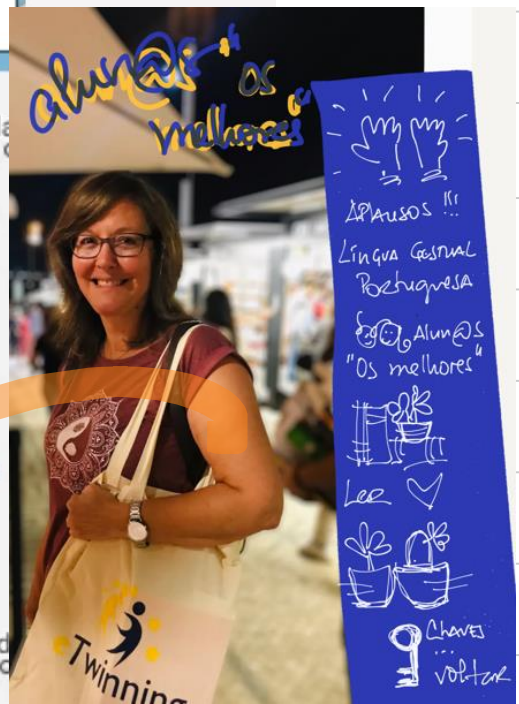 alun@s "os
melhores"
APLAUSOS !!!
Língua Gestual
Portuguesa
Alun@s
"Os melhores"
Ler
Chaves
...
voltar
eTwinning